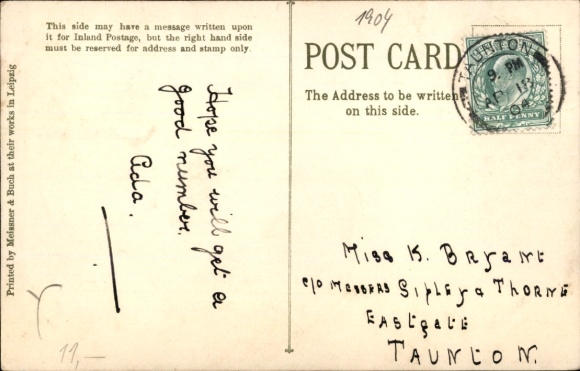 This side may have a message written upon
it for Inland Postage, but the right hand side
must be reserved for address and stamp only.
Printed by Meissner & Buch at their works in Leipzig
Hope you will get a
good number.
Ada.
11,—
1904
POST CARD
The Address to be written
on this side.
TAUNTON
9. PM
AP 18
04
HALF PENNY
Miss K. Bryant
c/o Messers Sipley & Thorne
Eastgate
Taunton.